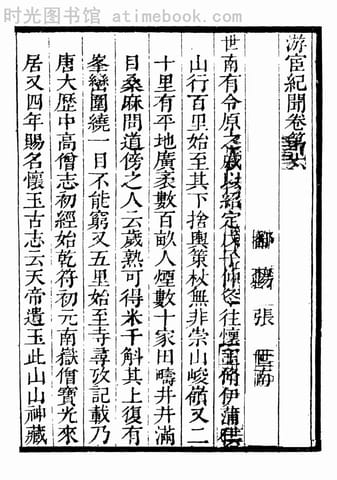 时光图书馆 - www.atimebook.com
游宦紀聞卷第六
鄱陽 張 世南
世南有令原之戚以紹定戊子仲冬往懷玉脩伊蒲供
山行百里始至其下捨輿策杖無非崇山峻嶺又二
十里有平地廣袤數百畝人煙數十家田疇井井滿
目桑麻問道傍之人云歲熟可得米千斛其上復有
峯巒圍繞一目不能窮又五里始至寺尋攷記載乃
唐大歷中高僧志初經始乾符初元南嶽僧寶光來
居又四年賜名懷玉古志云天帝遺玉此山山神藏
www.atimebook.com